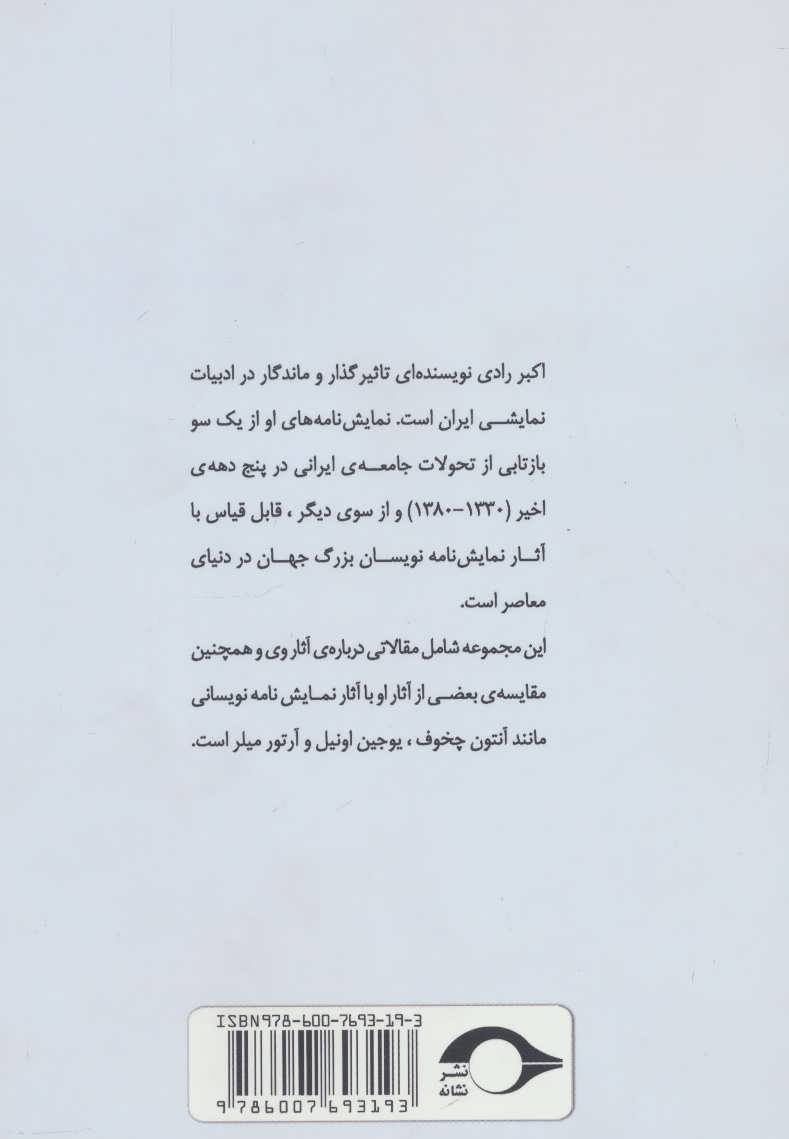 اکبر رادی نویسنده‌ای تاثیرگذار و ماندگار در ادبیات
نمایشی ایران است. نمایش‌نامه‌های او از یک سو
بازتابی از تحولات جامعه‌ی ایرانی در پنج دهه‌ی
اخیر (۱۳۳۰-۱۳۸۰) و از سوی دیگر ، قابل قیاس با
آثار نمایش‌نامه نویسان بزرگ جهان در دنیای
معاصر است.
این مجموعه شامل مقالاتی درباره‌ی آثار وی و همچنین
مقایسه‌ی بعضی از آثار او با آثار نمایش نامه نویسانی
مانند آنتون چخوف ، یوجین اونیل و آرتور میلر است.
ISBN978-600-7693-19-3
9 786007 693193
نشر
نشانه